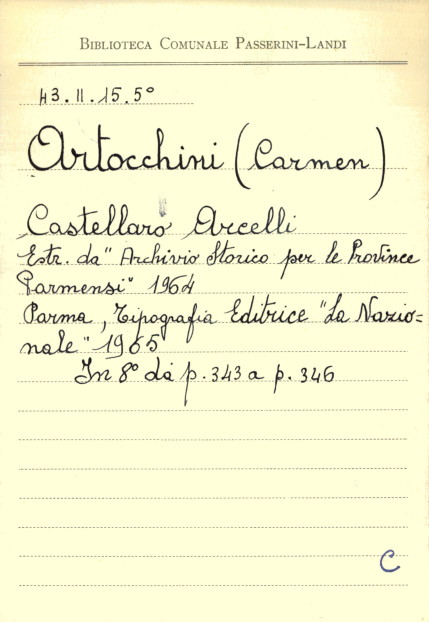 BIBLIOTECA COMUNALE PASSERINI-LANDI
43.II.15.5°
Artocchini (Carmen)
Castellaro Arcelli
Estr. da "Archivio Storico per le Province
Parmensi" 1964
Parma, Tipografia Editrice "La Nazio=
nale" 1965
In 8° da p. 343 a p. 346
C